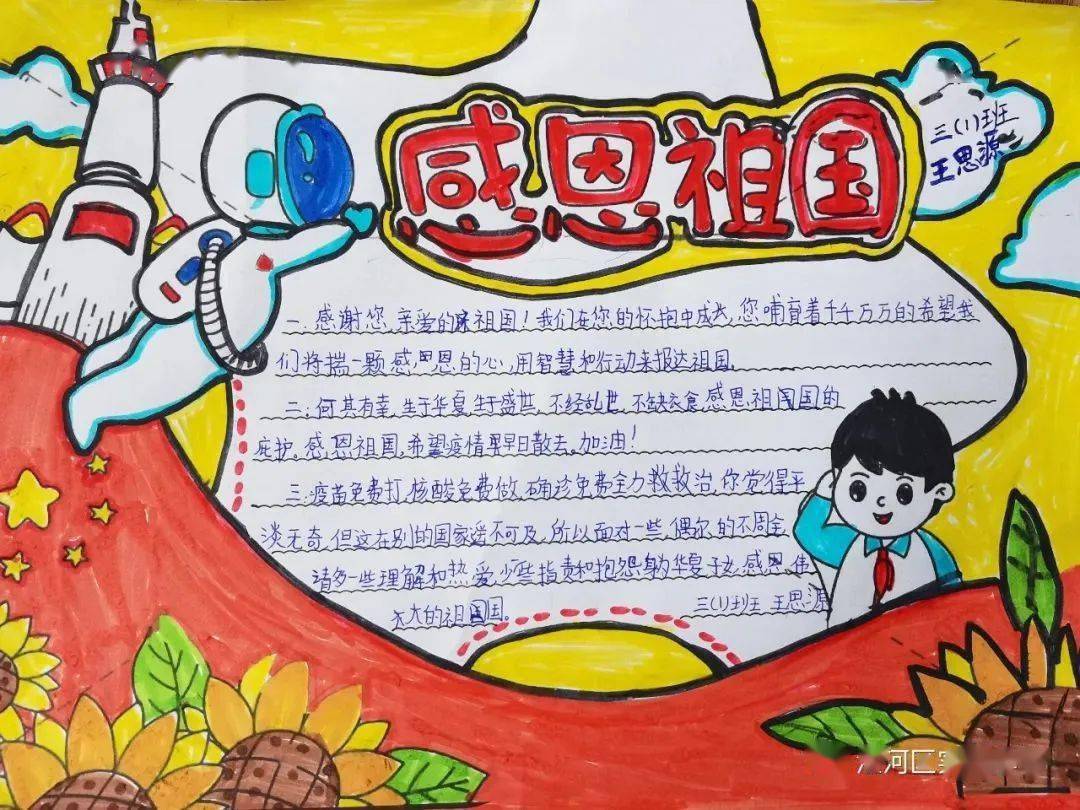 感恩祖国
三(1)班
王思源
一.感谢您,亲爱的祖国!我们在您的怀抱中成长,您哺育着千千万万的希望我
们将揣一颗感恩的心,用智慧和行动来报达祖国.
二:何其有幸,生于华夏,生于盛世,不经乱世,不缺衣食,感恩祖国的
庇护。感恩祖国,希望疫情早日散去。加油!
三:疫苗免费打,核酸免费做,确诊免费全力救治,你觉得平
淡无奇,但这在别的国家遥不可及,所以面对一些,偶尔的不周全
请多一些理解和热爱,少些指责和抱怨,身为华夏子女,感恩,伟
大的祖国。
三(1)班 王思源
河区